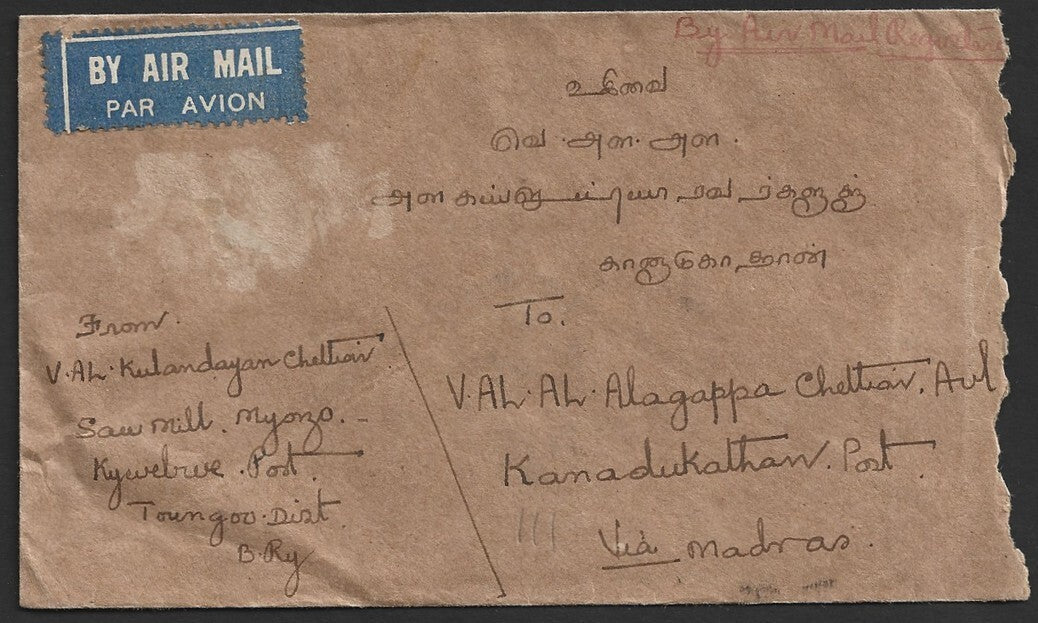 BY AIR MAIL
PAR AVION
By Air Mail
உ சிவமயம்
வெ . அள . அள .
கானாடுகாத்தான்
From
V.AL. Kulandayan Chettiar
Saw mill. Myonzo. -
Kywebwe. Post.
Toungoo. Dist
B.Ry
To.
V.AL. AL. Alagappa Chettiar. Avl
Kanadukathan. Post
Via madras.